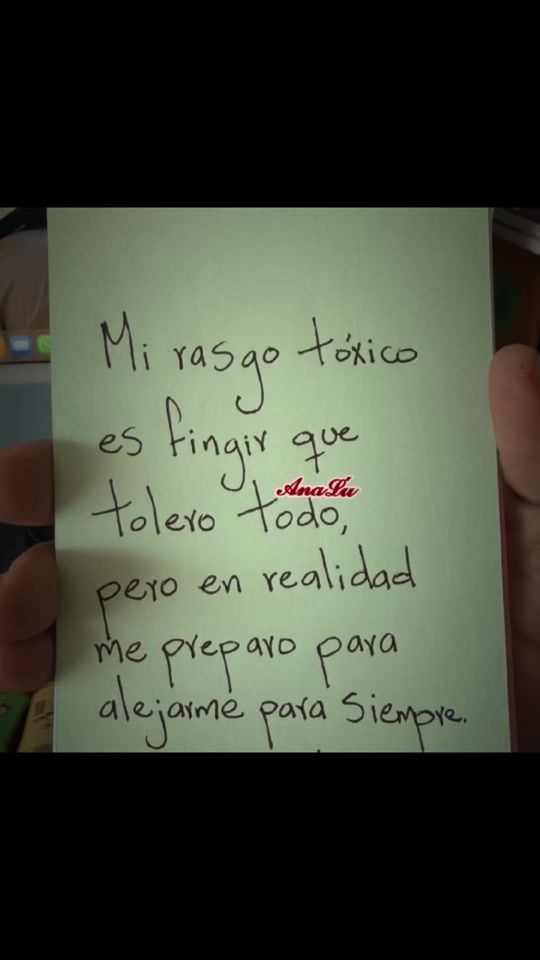 Mi rasgo tóxico
es fingir que
AnaLu
tolero todo,
pero en realidad
me preparo para
alejarme para siempre.